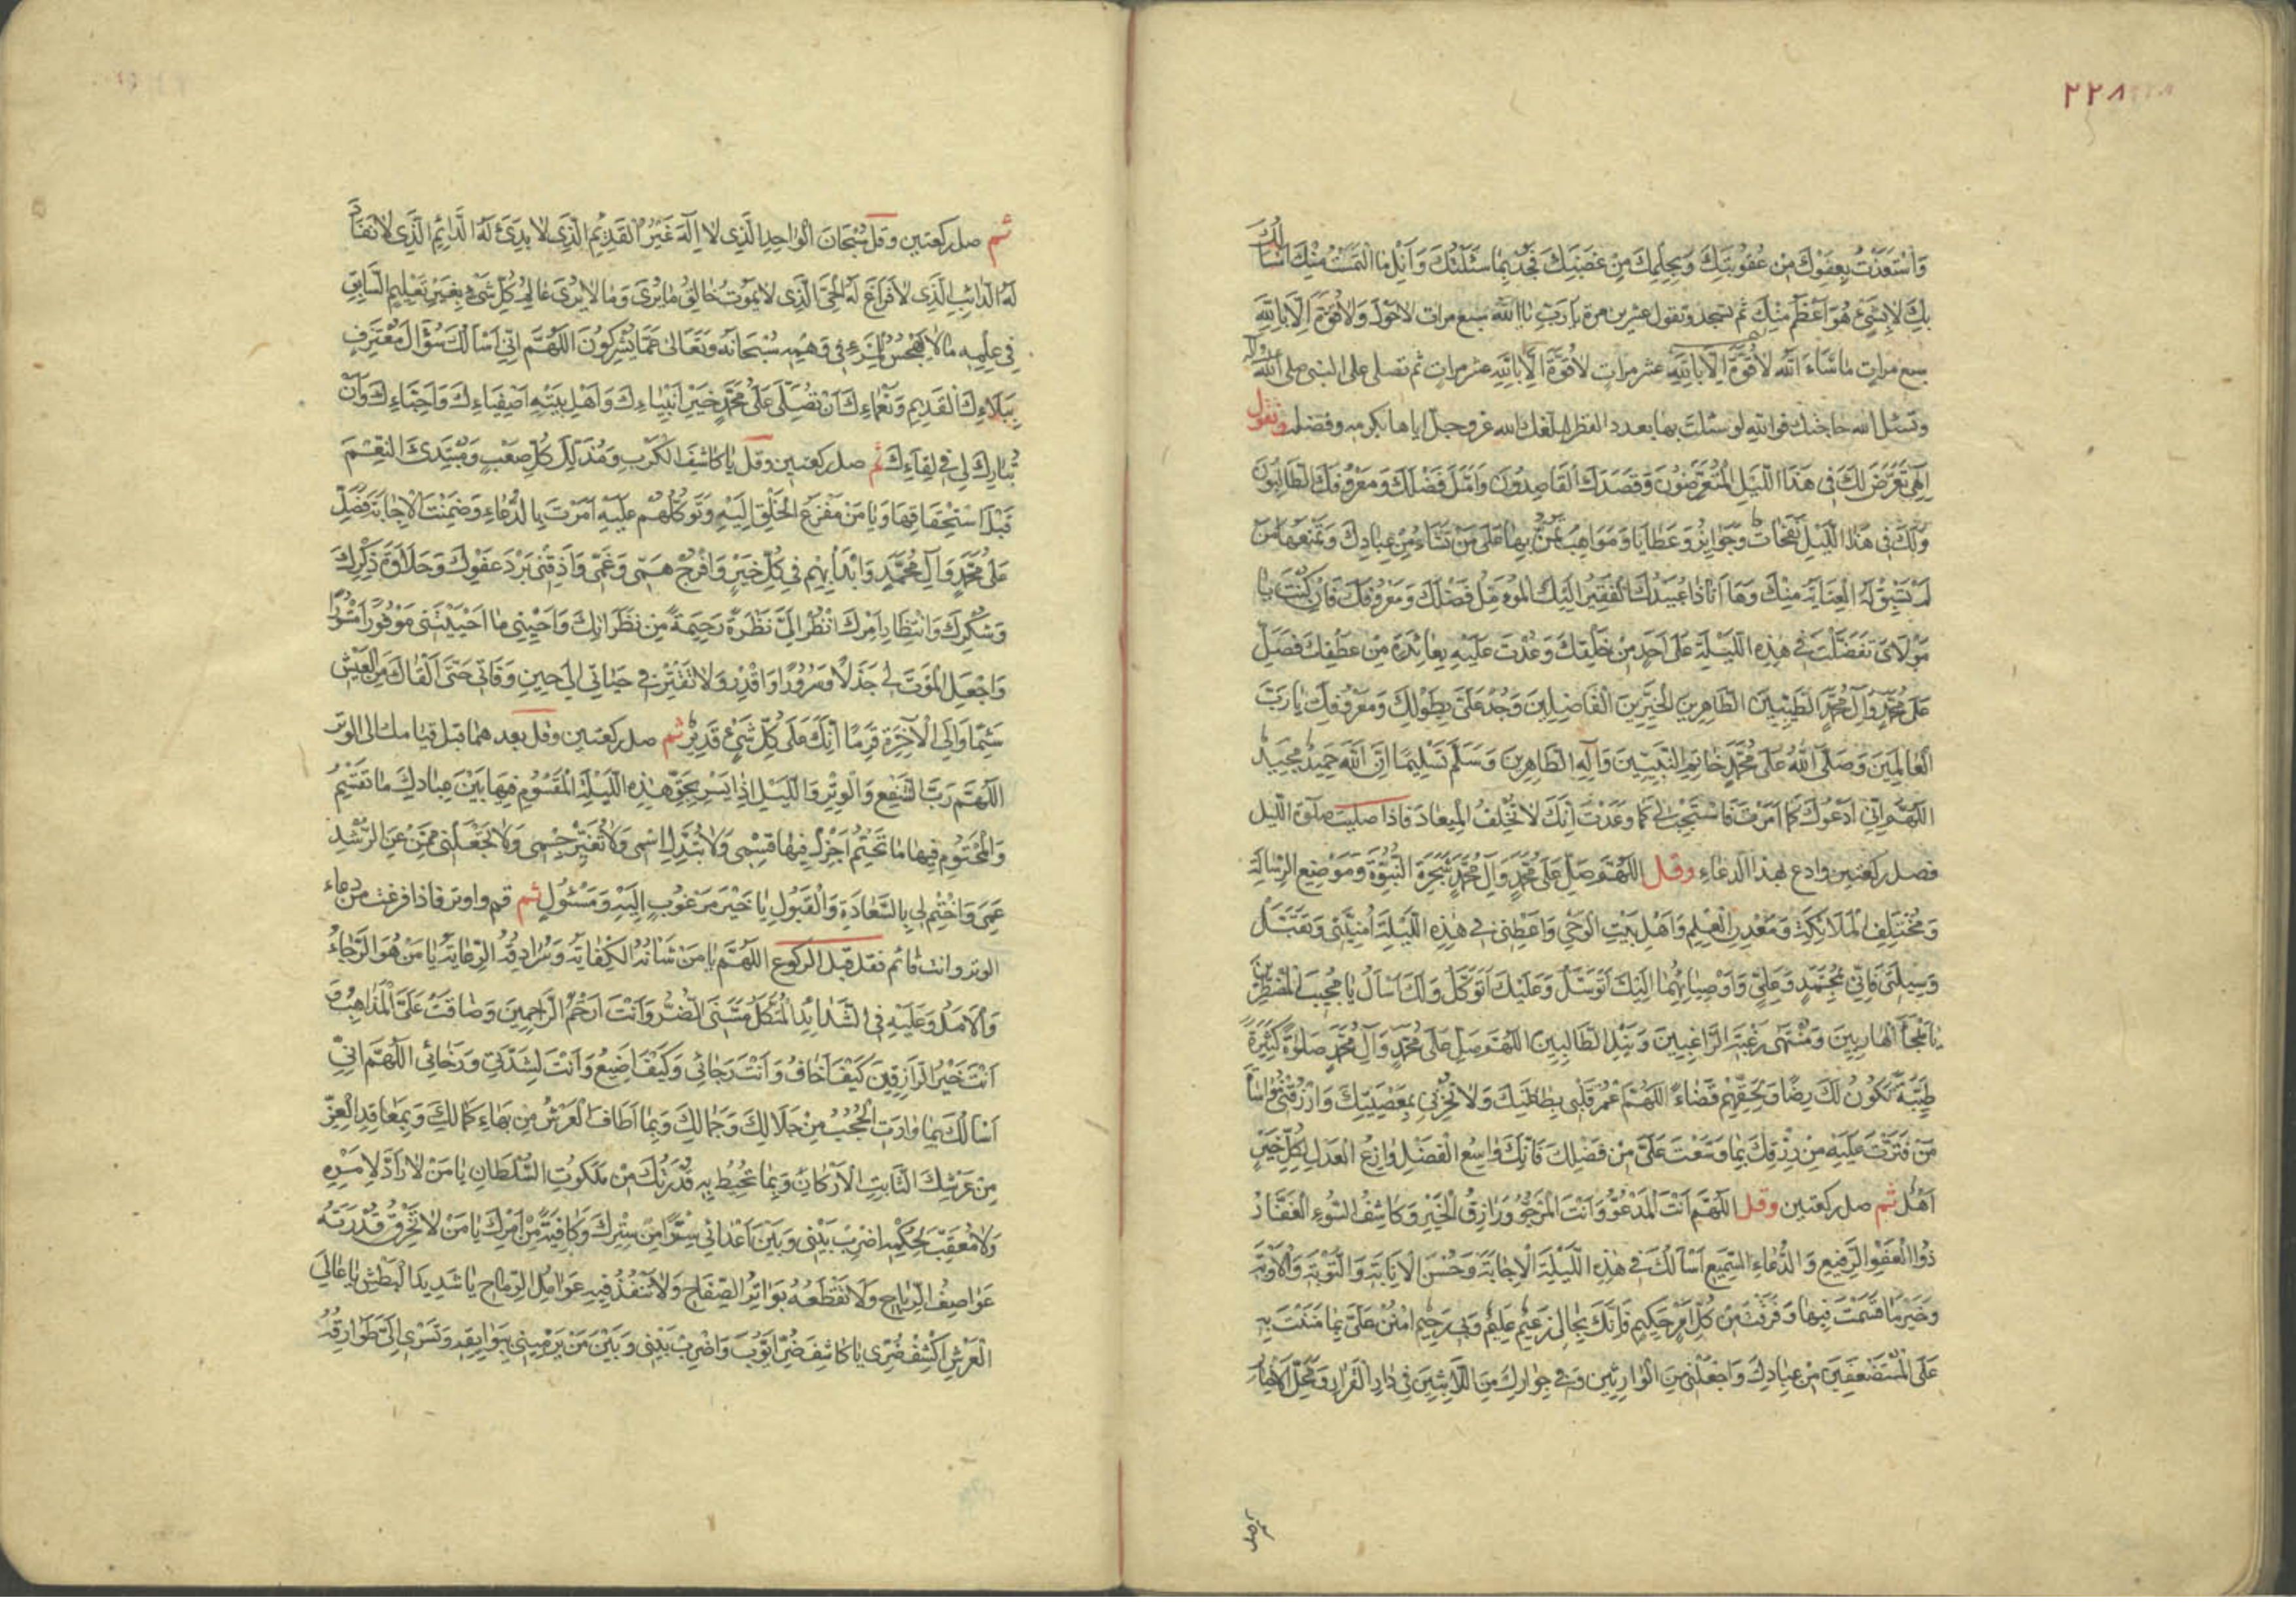 ٢٢٨
وَاسْتَعَذْتُ بِعَفْوِكَ مِنْ عُقُوبَتِكَ وَبِحِلْمِكَ مِنْ غَضَبِكَ فَجُدْ بِمَا سَئَلْتُكَ وَاَنِلْ مَا الْتَمَسْتُ مِنْكَ اَسْاَلُكَ
بِكَ لَا بِشَىْءٍ هُوَ اَعْظَمُ مِنْكَ ثم تسجد وتقول عشرين مرة يَا رَبِّ يَا اَللّٰهُ سبع مرات لَا حَوْلَ وَلَا قُوَّةَ اِلَّا بِاللّٰهِ
سبع مرات مَا شَاءَ اللّٰهُ لَا قُوَّةَ اِلَّا بِاللّٰهِ عشر مرات لَا قُوَّةَ اِلَّا بِاللّٰهِ عشر مرات ثم تصلى على النبى صلى اللّٰه عليه وآله
وتسئل الله حاجتك فوالله لو سئلت بها بعدد القطر لبلغك الله عز وجل اياها بكرمه وفضله وتقول
اِلٰهِى تَعَرَّضَ لَكَ فِى هَذَا اللَّيْلِ الْمُتَعَرِّضُونَ وَقَصَدَكَ الْقَاصِدُونَ وَاَمَّلَ فَضْلَكَ وَمَعْرُوفَكَ الطَّالِبُونَ
وَلَكَ فِى هَذَا اللَّيْلِ نَفَحَاتٌ وَجَوَائِزُ وَعَطَايَا وَمَوَاهِبُ تَمُنُّ بِهَا عَلَى مَنْ تَشَاءُ مِنْ عِبَادِكَ وَتَمْنَعُهَا مَنْ
لَمْ تَسْبِقْ لَهُ الْعِنَايَةُ مِنْكَ وَهَا اَنَا ذَا عُبَيْدُكَ الْفَقِيرُ اِلَيْكَ الْمُؤَمِّلُ فَضْلَكَ وَمَعْرُوفَكَ فَاِنْ كُنْتَ يَا
مَوْلَاىَ تَفَضَّلْتَ فِى هٰذِهِ اللَّيْلَةِ عَلَى اَحَدٍ مِنْ خَلْقِكَ وَعُدْتَ عَلَيْهِ بِعَائِدَةٍ مِنْ عَطْفِكَ فَصَلِّ
عَلَى مُحَمَّدٍ وَآلِ مُحَمَّدٍ الطَّيِّبِينَ الطَّاهِرِينَ الْخَيِّرِينَ الْفَاضِلِينَ وَجُدْ عَلَىَّ بِطَوْلِكَ وَمَعْرُوفِكَ يَا رَبَّ
الْعَالَمِينَ وَصَلَّى اللّٰهُ عَلَى مُحَمَّدٍ خَاتَمِ النَّبِيِّينَ وَآلِهِ الطَّاهِرِينَ وَسَلَّمَ تَسْلِيمًا اِنَّ اللّٰهَ حَمِيدٌ مَجِيدٌ
اَللّٰهُمَّ اِنِّى اَدْعُوكَ كَمَا اَمَرْتَ فَاسْتَجِبْ لِى كَمَا وَعَدْتَ اِنَّكَ لَا تُخْلِفُ الْمِيعَادَ فاذا صليت صلوة الليل
فصل ركعتين وادع بهذا الدعاء وقل اَللّٰهُمَّ صَلِّ عَلَى مُحَمَّدٍ وَآلِ مُحَمَّدٍ شَجَرَةِ النُّبُوَّةِ وَمَوْضِعِ الرِّسَالَةِ
وَمُخْتَلَفِ الْمَلَائِكَةِ وَمَعْدِنِ الْعِلْمِ وَاَهْلِ بَيْتِ الْوَحْىِ وَاَعْطِنِى فِى هٰذِهِ اللَّيْلَةِ اُمْنِيَّتِى وَتَقَبَّلْ
وَسِيلَتِى فَاِنِّى بِمُحَمَّدٍ وَعَلِىٍّ وَاَوْصِيَائِهِمَا اِلَيْكَ اَتَوَسَّلُ وَعَلَيْكَ اَتَوَكَّلُ وَلَكَ اَسْاَلُ يَا مُجِيبَ الْمُضْطَرِّينَ
يَا مَلْجَاَ الْهَارِبِينَ وَمُنْتَهَى رَغْبَةِ الرَّاغِبِينَ وَنَيْلَ الطَّالِبِينَ اَللّٰهُمَّ صَلِّ عَلَى مُحَمَّدٍ وَآلِ مُحَمَّدٍ صَلٰوةً كَثِيرَةً
طَيِّبَةً تَكُونُ لَكَ رِضًا وَلِحَقِّهِمْ قَضَاءً اَللّٰهُمَّ اعْمُرْ قَلْبِى بِطَاعَتِكَ وَلَا تُخْزِنِى بِمَعْصِيَتِكَ وَارْزُقْنِى مُوَاسَاةَ
مَنْ قَتَّرْتَ عَلَيْهِ مِنْ رِزْقِكَ بِمَا وَسَّعْتَ عَلَىَّ مِنْ فَضْلِكَ فَاِنَّكَ وَاسِعُ الْفَضْلِ وَازِعُ الْعَدْلِ لِكُلِّ خَيْرٍ
اَهْلٌ ثم صل ركعتين وقل اَللّٰهُمَّ اَنْتَ الْمَدْعُوُّ وَاَنْتَ الْمَرْجُوُّ وَرَازِقُ الْخَيْرِ وَكَاشِفُ السُّوءِ الْغَفَّارُ
ذُو الْعَفْوِ الرَّفِيعِ وَالدُّعَاءِ السَّمِيعِ اَسْاَلُكَ فِى هٰذِهِ اللَّيْلَةِ الْاِجَابَةَ وَحُسْنَ الْاِنَابَةِ وَالتَّوْبَةَ وَالْاَوْبَةَ
وَخَيْرَ مَا قَسَمْتَ فِيهَا وَفَرَقْتَ مِنْ كُلِّ اَمْرٍ حَكِيمٍ فَاِنَّكَ بِحَالِى زَعِيمٌ عَلِيمٌ وَبِى رَحِيمٌ امْنُنْ عَلَىَّ بِمَا مَنَنْتَ بِهِ
عَلَى الْمُسْتَضْعَفِينَ مِنْ عِبَادِكَ وَاجْعَلْنِى مِنَ الْوَارِثِينَ وَفِى جِوَارِكَ مِنَ اللَّابِثِينَ فِى دَارِ الْقَرَارِ وَمَحَلِّ الْاَخْيَارِ
ثم صل
ثم صل ركعتين وقل سُبْحَانَ الْوَاحِدِ الَّذِى لَا اِلٰهَ غَيْرُهُ الْقَدِيمِ الَّذِى لَا بَدِىءَ لَهُ الدَّائِمِ الَّذِى لَا نَفَادَ
لَهُ الدَّائِبِ الَّذِى لَا فَرَاغَ لَهُ الْحَىِّ الَّذِى لَا يَمُوتُ خَالِقِ مَا يُرَى وَمَا لَا يُرَى عَالِمِ كُلِّ شَىْءٍ بِغَيْرِ تَعْلِيمٍ السَّابِقِ
فِى عِلْمِهِ مَا لَا يَهْجُسُ لِلْمَرْءِ فِى وَهْمِهِ سُبْحَانَهُ وَتَعَالَى عَمَّا يُشْرِكُونَ اَللّٰهُمَّ اِنِّى اَسْاَلُكَ سُؤَالَ مُعْتَرِفٍ
بِبَلَاءِكَ الْقَدِيمِ وَنَعْمَاءِكَ اَنْ تُصَلِّىَ عَلَى مُحَمَّدٍ خَيْرِ اَنْبِيَاءِكَ وَاَهْلِ بَيْتِهِ اَصْفِيَاءِكَ وَاَحِبَّاءِكَ وَاَنْ
تُبَارِكَ لِى فِى لِقَاءِكَ ثم صل ركعتين وقل يَا كَاشِفَ الْكَرْبِ وَمُذَلِّلَ كُلِّ صَعْبٍ وَمُبْتَدِئَ النِّعَمِ
قَبْلَ اسْتِحْقَاقِهَا وَيَا مَنْ مَفْزَعُ الْخَلْقِ اِلَيْهِ وَتَوَكُّلُهُمْ عَلَيْهِ اَمَرْتَ بِالدُّعَاءِ وَضَمِنْتَ الْاِجَابَةَ فَصَلِّ
عَلَى مُحَمَّدٍ وَآلِ مُحَمَّدٍ وَابْدَأْ بِهِمْ فِى كُلِّ خَيْرٍ وَافْرُجْ هَمِّى وَغَمِّى وَاَذِقْنِى بَرْدَ عَفْوِكَ وَحَلَاوَةَ ذِكْرِكَ
وَشُكْرِكَ وَانْتِظَارِ اَمْرِكَ انْظُرْ اِلَىَّ نَظْرَةً رَحِيمَةً مِنْ نَظَرَاتِكَ وَاَحْيِنِى مَا اَحْيَيْتَنِى مَوْفُورًا مَسْتُورًا
وَاجْعَلِ الْمَوْتَ لِى جَذَلًا وَسُرُورًا وَاقْدِرْ وَلَا تُقَتِّرْ فِى حَيَاتِى اِلَى حِينِ وَفَاتِى حَتَّى اَلْقَاكَ مِنَ الْعَيْشِ
سَئِمًا وَاِلَى الْآخِرَةِ قَرِمًا اِنَّكَ عَلَى كُلِّ شَىْءٍ قَدِيرٌ ثم صل ركعتين وقل بعدهما قبل قيامك الى الوتر
اَللّٰهُمَّ رَبَّ الشَّفْعِ وَالْوَتْرِ وَاللَّيْلِ اِذَا يَسْرِ بِحَقِّ هٰذِهِ اللَّيْلَةِ الْمَقْسُومِ فِيهَا بَيْنَ عِبَادِكَ مَا تَقْسِمُ
وَالْمَحْتُومِ فِيهَا مَا تَحْتِمُ اَجْزِلْ فِيهَا قِسْمِى وَلَا تُبَدِّلِ اسْمِى وَلَا تُغَيِّرْ جِسْمِى وَلَا تَجْعَلْنِى مِمَّنْ عَنِ الرُّشْدِ
عَمِىَ وَاخْتِمْ لِى بِالسَّعَادَةِ وَالْقَبُولِ يَا خَيْرَ مَرْغُوبٍ اِلَيْهِ وَمَسْئُولٍ ثم قم واوتر فاذا فرغت من دعاء
الوتر وانت قائم فقل قبل الركوع اَللّٰهُمَّ يَا مَنْ شَانُهُ الْكِفَايَةُ وَسُرَادِقُهُ الرِّعَايَةُ يَا مَنْ هُوَ الرَّجَاءُ
وَالْاَمَلُ وَعَلَيْهِ فِى الشَّدَائِدِ الْمُتَّكَلُ مَسَّنِىَ الضُّرُّ وَاَنْتَ اَرْحَمُ الرَّاحِمِينَ وَضَاقَتْ عَلَىَّ الْمَذَاهِبُ وَ
اَنْتَ خَيْرُ الرَّازِقِينَ كَيْفَ اَخَافُ وَاَنْتَ رَجَائِى وَكَيْفَ اَضِيعُ وَاَنْتَ لِشِدَّتِى وَرَخَائِى اَللّٰهُمَّ اِنِّى
اَسْاَلُكَ بِمَا وَارَتِ الْحُجُبُ مِنْ جَلَالِكَ وَجَمَالِكَ وَبِمَا اَطَافَ الْعَرْشُ مِنْ بَهَاءِ كَمَالِكَ وَبِمَعَاقِدِ الْعِزِّ
مِنْ عَرْشِكَ الثَّابِتِ الْاَرْكَانِ وَبِمَا تُحِيطُ بِهِ قُدْرَتُكَ مِنْ مَلَكُوتِ السُّلْطَانِ يَا مَنْ لَا رَادَّ لِاَمْرِهِ
وَلَا مُعَقِّبَ لِحُكْمِهِ اضْرِبْ بَيْنِى وَبَيْنَ اَعْدَائِى سِتْرًا مِنْ سِتْرِكَ وَكَافِيَةً مِنْ اَمْرِكَ يَا مَنْ لَا تَخْرِقُ قُدْرَتَهُ
عَوَاصِفُ الرِّيَاحِ وَلَا تَقْطَعُهُ بَوَاتِرُ الصِّفَاحِ وَلَا تَنْفُذُ فِيهِ عَوَامِلُ الرِّمَاحِ يَا شَدِيدَ الْبَطْشِ يَا عَالِىَ
الْعَرْشِ اكْشِفْ ضُرِّى يَا كَاشِفَ ضُرِّ اَيُّوبَ وَاضْرِبْ بَيْنِى وَبَيْنَ مَنْ يَرْمِينِى بِبَوَائِقِهِ وَتَسْرِى اِلَىَّ طَوَارِقُهُ